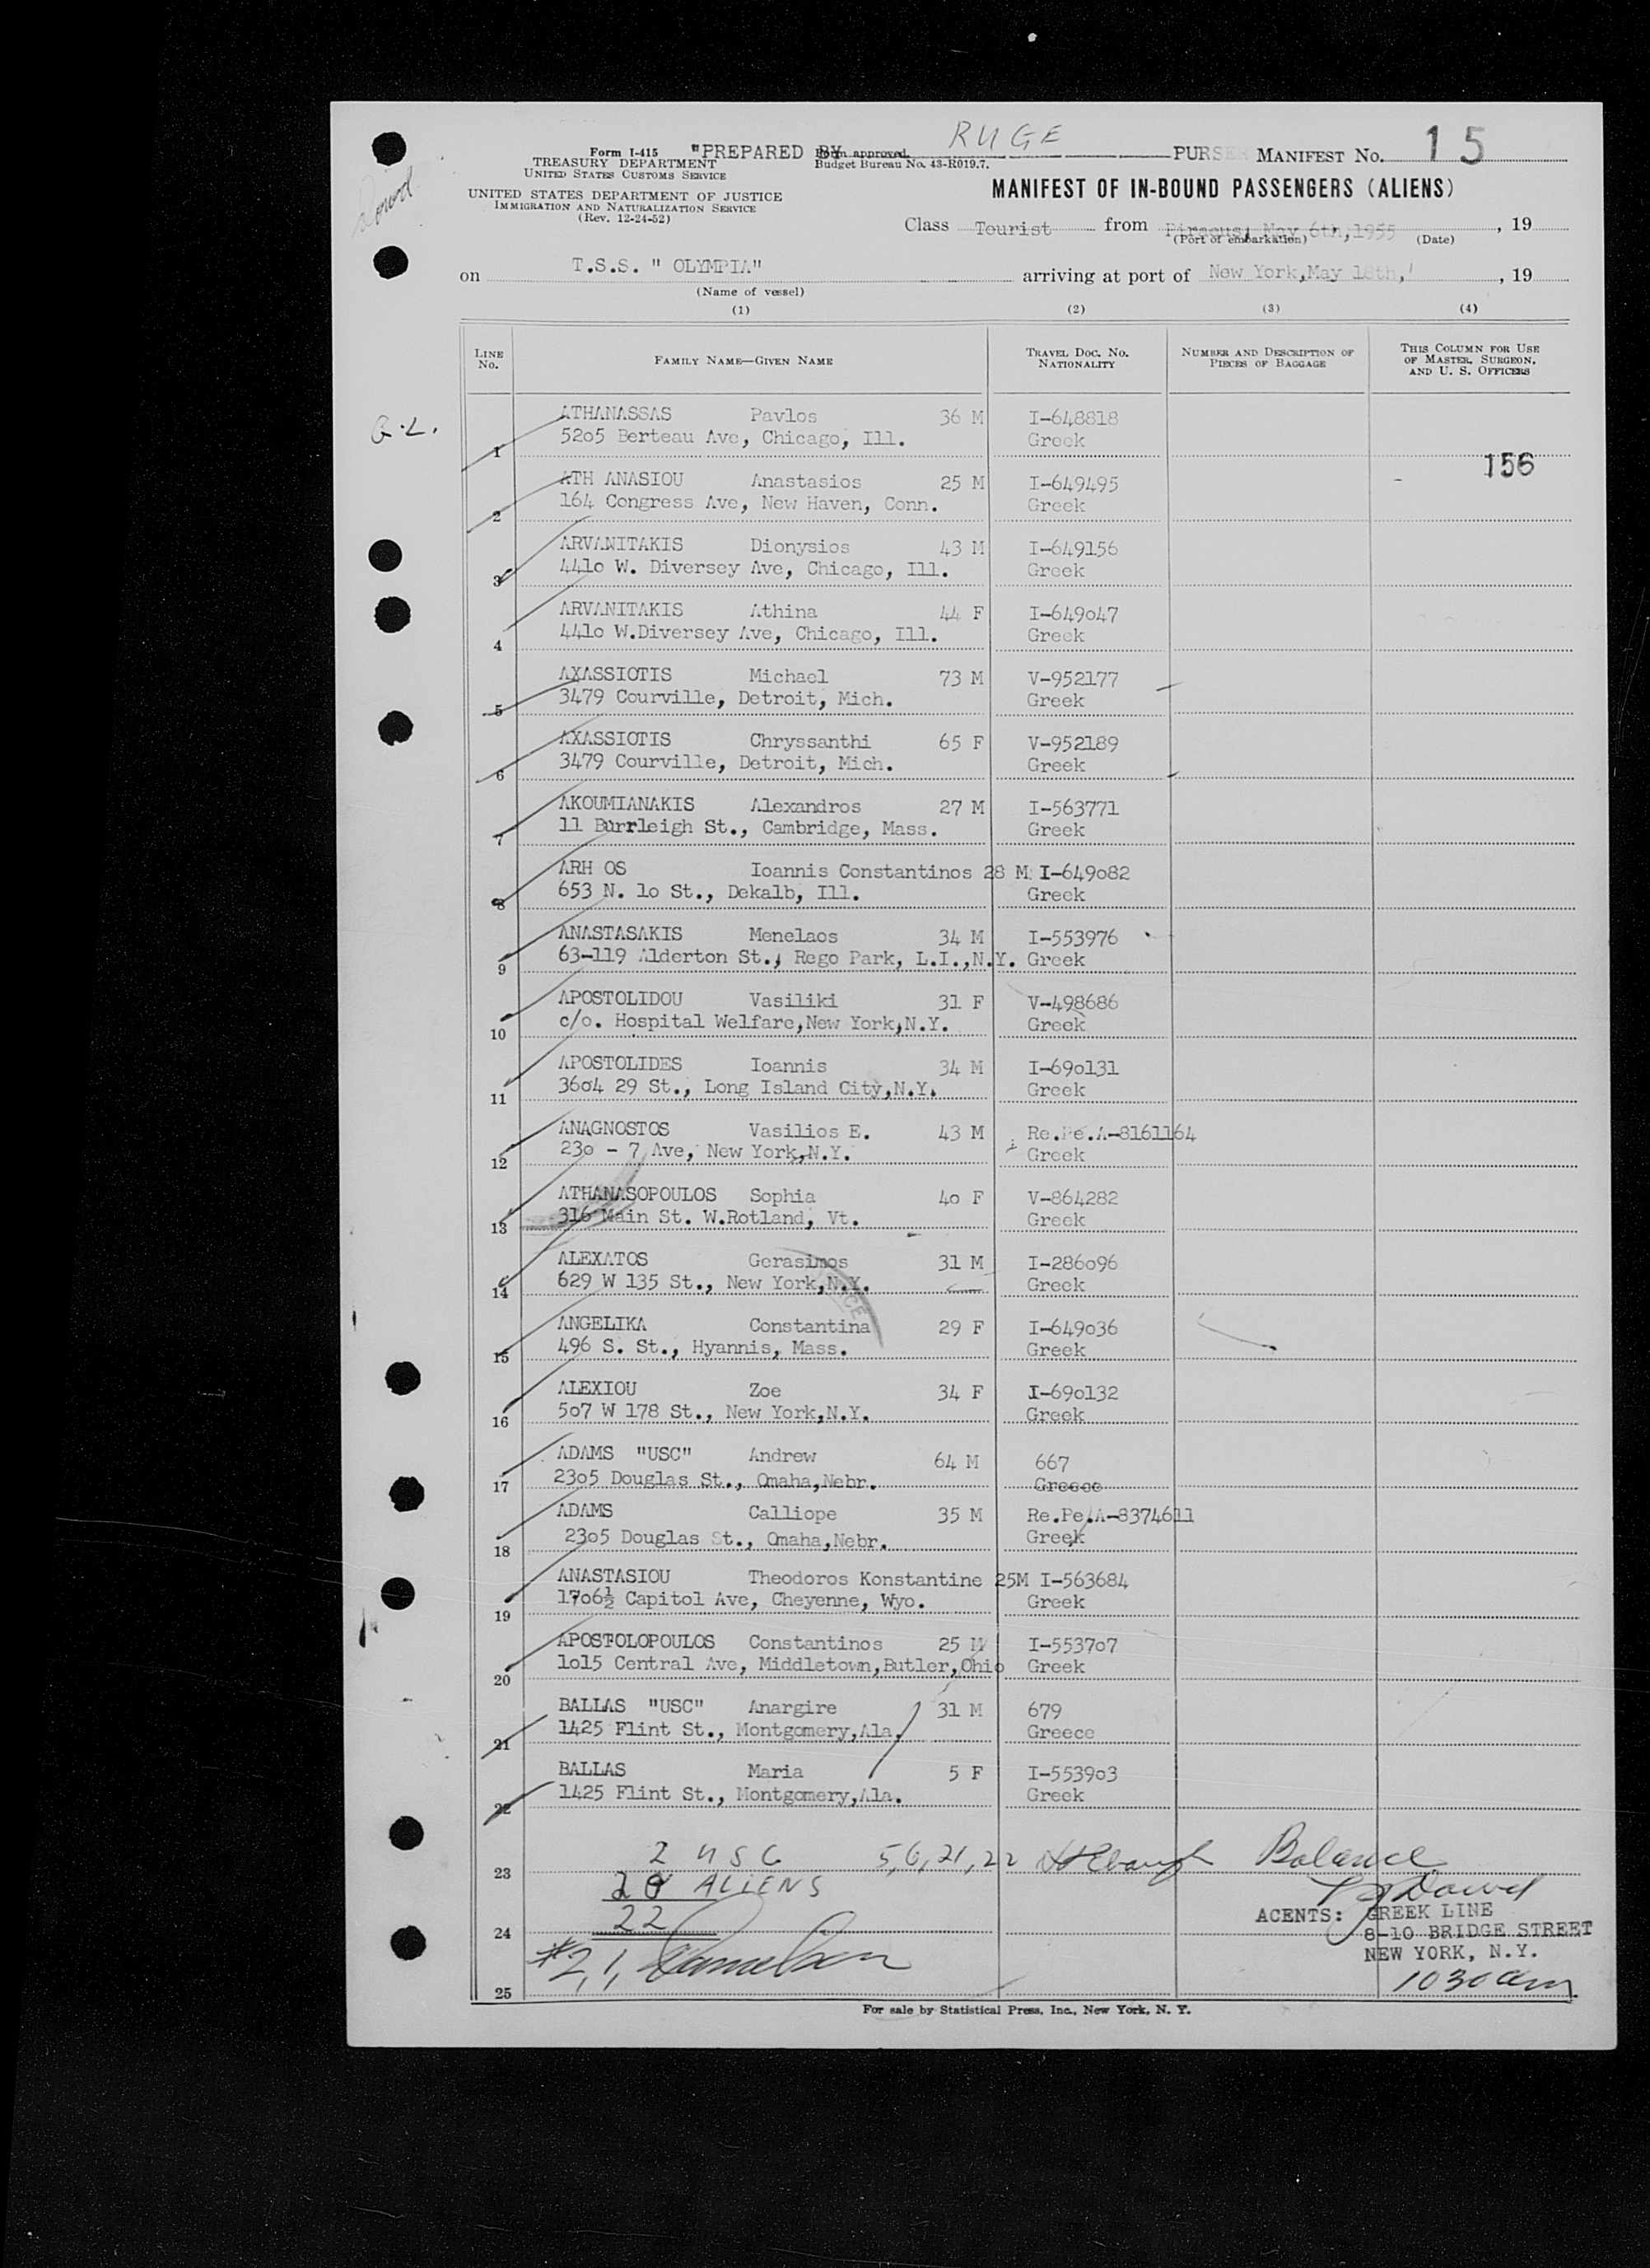 RUGE
Form I-415 "PREPARED BY Form approved. PURSER MANIFEST No. 15
TREASURY DEPARTMENT Budget Bureau No. 43-R019.7.
UNITED STATES CUSTOMS SERVICE
UNITED STATES DEPARTMENT OF JUSTICE
IMMIGRATION AND NATURALIZATION SERVICE
(Rev. 12-24-52)
MANIFEST OF IN-BOUND PASSENGERS (ALIENS)
Class Tourist from Piraeus, May 6th,1955, 19
(Port of embarkation) (Date)
on T.S.S. " OLYMPIA" arriving at port of New York,May 18th, , 19
(Name of vessel)
(1) (2) (3) (4)
LINE No. FAMILY NAME—GIVEN NAME TRAVEL DOC. NO. NATIONALITY NUMBER AND DESCRIPTION OF PIECES OF BAGGAGE THIS COLUMN FOR USE OF MASTER, SURGEON, AND U. S. OFFICERS
G.L.
ATHANASSAS Pavlos 36 M I-648818
1 5205 Berteau Ave, Chicago, Ill. Greek
156
ATH ANASIOU Anastasios 25 M I-649495
2 164 Congress Ave, New Haven, Conn. Greek
ARVANITAKIS Dionysios 43 M I-649156
3 441o W. Diversey Ave, Chicago, Ill. Greek
ARVANITAKIS Athina 44 F I-649o47
4 441o W.Diversey Ave, Chicago, Ill. Greek
AXASSIOTIS Michael 73 M V-952177
5 3479 Courville, Detroit, Mich. Greek
AXASSIOTIS Chryssanthi 65 F V-952189
6 3479 Courville, Detroit, Mich. Greek
AKOUMIANAKIS Alexandros 27 M I-563771
7 11 Burrleigh St., Cambridge, Mass. Greek
ARH OS Ioannis Constantinos 28 M I-649o82
8 653 N. lo St., Dekalb, Ill. Greek
ANASTASAKIS Menelaos 34 M I-553976
9 63-119 Alderton St., Rego Park, L.I.,N.Y. Greek
APOSTOLIDOU Vasiliki 31 F V-498686
10 c/o. Hospital Welfare,New York,N.Y. Greek
APOSTOLIDES Ioannis 34 M I-69o131
11 36o4 29 St., Long Island City,N.Y. Greek
ANAGNOSTOS Vasilios E. 43 M Re.Pe.A-8161164
12 23o - 7 Ave, New York,N.Y. Greek
ATHANASOPOULOS Sophia 4o F V-864282
13 316 Main St. W.Rotland, Vt. Greek
ALEXATOS Gerasimos 31 M I-286o96
14 629 W 135 St., New York,N.Y. Greek
ANGELIKA Constantina 29 F I-649o36
15 496 S. St., Hyannis, Mass. Greek
ALEXIOU Zoe 34 F I-69o132
16 5o7 W 178 St., New York,N.Y. Greek
ADAMS "USC" Andrew 64 M 667
17 23o5 Douglas St., Omaha,Nebr. Greece
ADAMS Calliope 35 M Re.Pe.A-8374611
18 23o5 Douglas St., Omaha,Nebr. Greek
ANASTASIOU Theodoros Konstantine 25M I-563684
19 17o6½ Capitol Ave, Cheyenne, Wyo. Greek
APOSTOLOPOULOS Constantinos 25 M I-5537o7
20 lo15 Central Ave, Middletown,Butler,Ohio Greek
BALLAS "USC" Anargire 31 M 679
21 1425 Flint St., Montgomery,Ala. Greece
BALLAS Maria 5 F I-5539o3
22 1425 Flint St., Montgomery,Ala. Greek
23 2 USC 5,6,21,22 Balance
20 ALIENS
22
24
ACENTS: GREEK LINE
8-10 BRIDGE STREET
NEW YORK, N.Y.
#2,1,
10 30 am
25
For sale by Statistical Press, Inc., New York, N. Y.